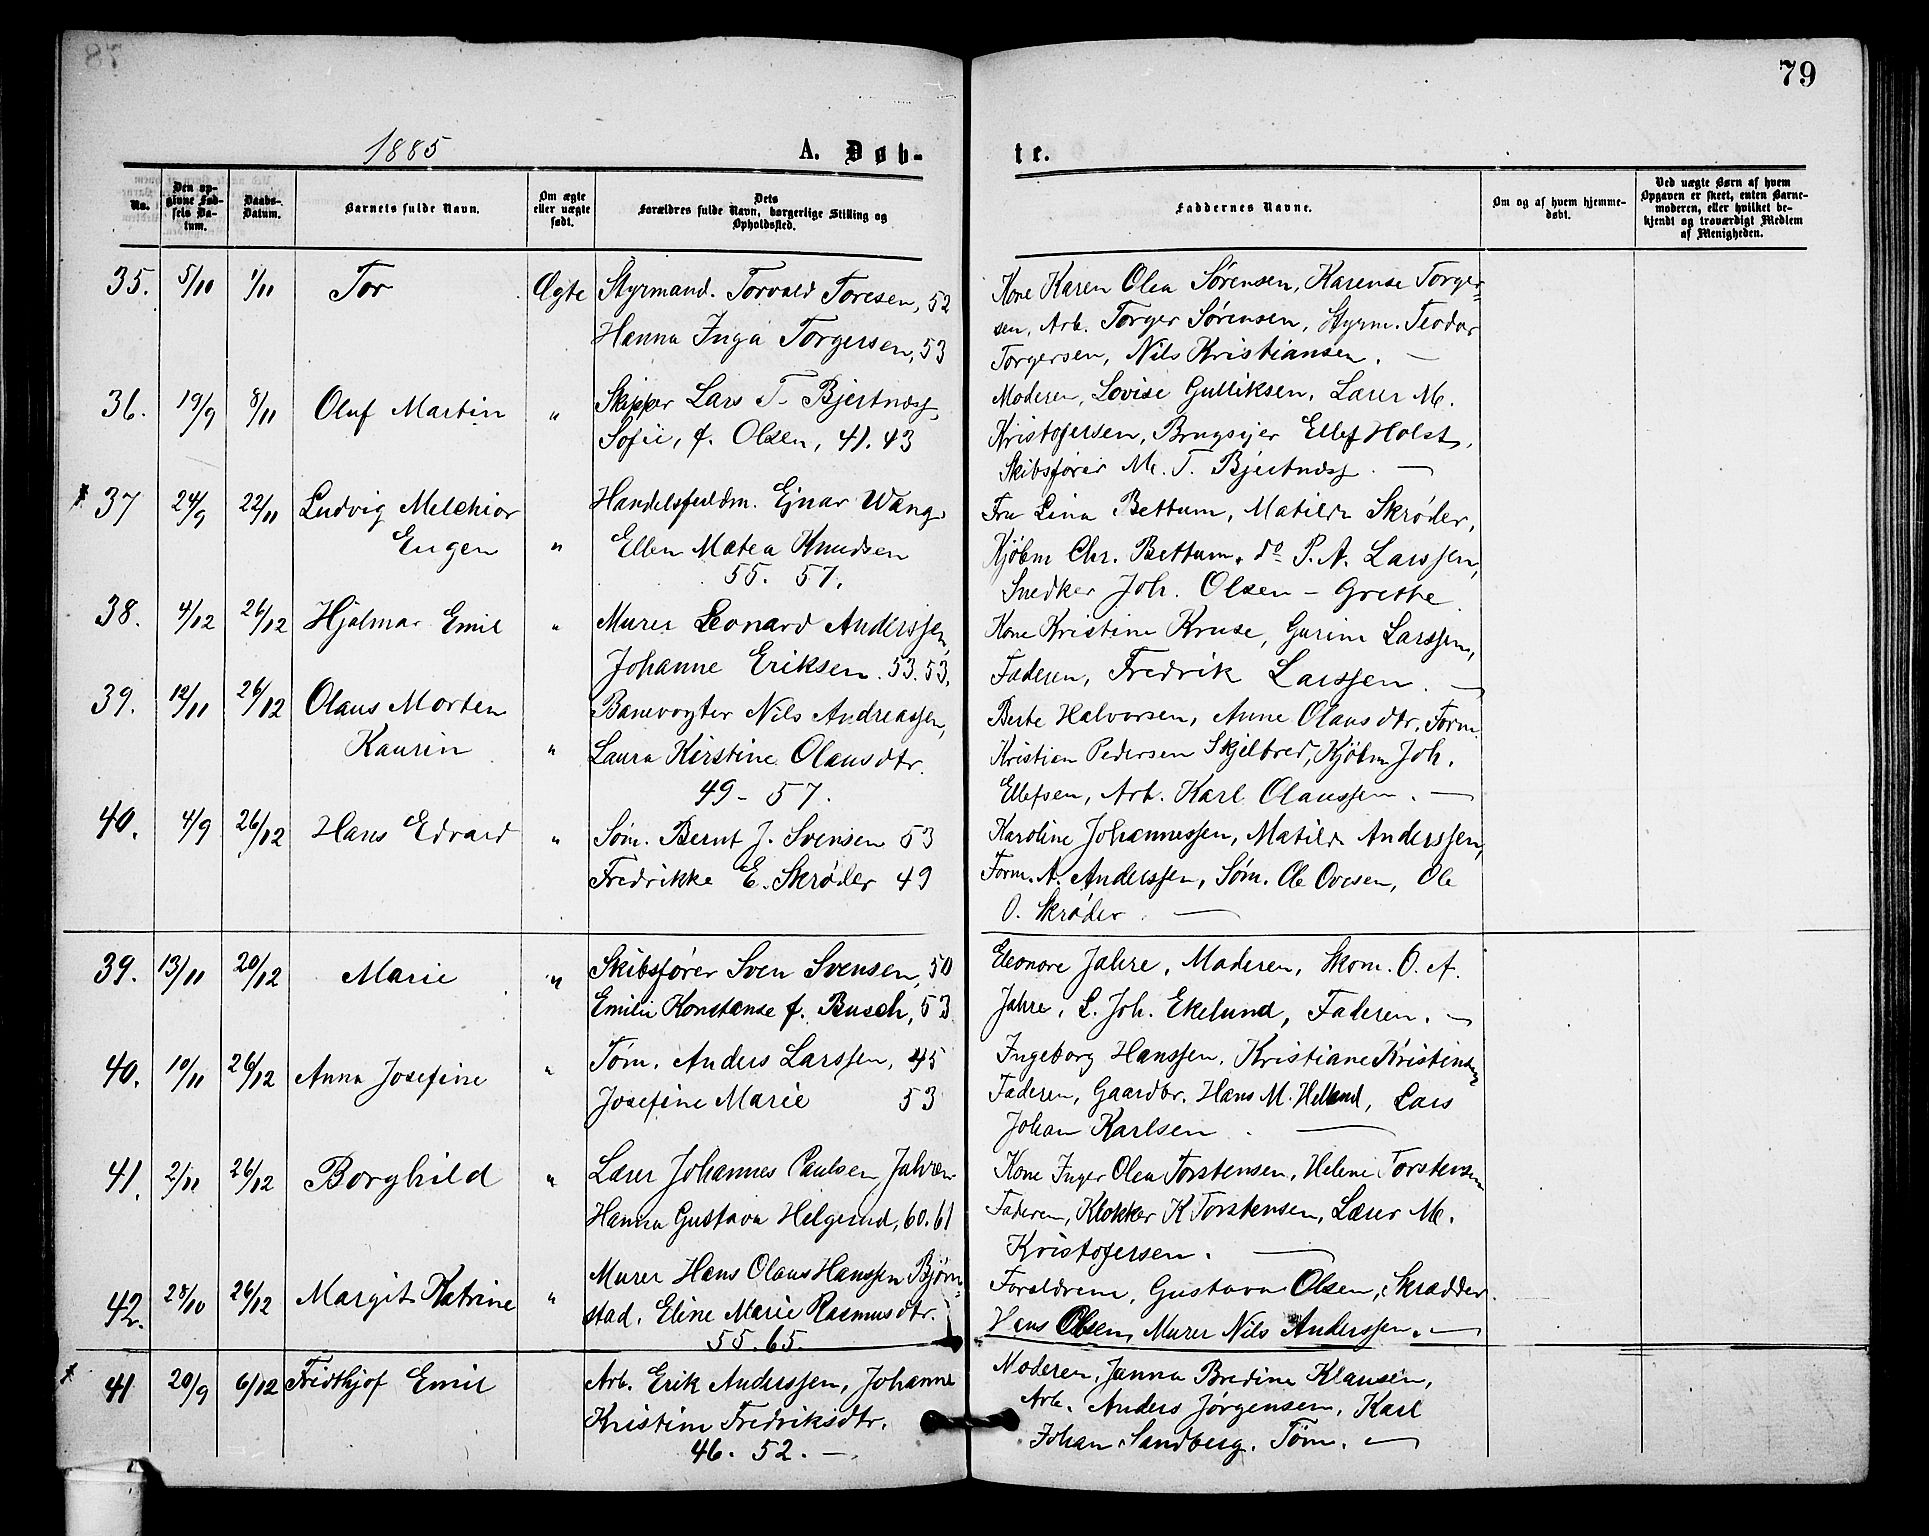 78
79
1885
A. Døb-
te.
No.
Den op-
givne Fød-
sels Da-
tum.
Daabs-
Datum.
Barnets fulde Navn.
Om ægte
eller uægte
født.
Dets
Forældres fulde Navn, borgerlige Stilling og
Opholdssted.
Faddernes Navne.
Om og af hvem hjemme-
døbt.
Ved uægte Børn af hvem
Opgaven er skeet, enten Barne-
moderen, eller hvilket be-
kjendt og troværdigt Medlem
af Menigheden.
35. 5/10 1/11 Tor Ægte Styrmand. Torvald Toresen, 52
Hanna Inga Torgersen, 53
Kone Karen Olea Sørensen, Karense Torger=
sen, Arb. Torger Sørensen, Styrm. Teodor
Torgersen, Nils Kristiansen. —
36. 19/9 8/11 Oluf Martin " Skipper Lars T. Bjertnæs,
Sofie, f. Olsen, 41. 43
Moderen, Lovise Gulliksen, Lærer M.
Kristofersen, Brugsejer Ellef Holst,
Skibsfører M. T. Bjertnæs. —
37 24/9 22/11 Ludvig Melchior
Eugen " Handelsfuldm. Ejnar Wang.
Ellen Matea Knudsen
55. 57.
Fru Lina Bettum, Matilde Skrøder,
Kjøbm Chr. Bettum, do P. A. Larssen,
Snedker Joh. Olsen - Grette.
38. 4/12 26/12 Hjalmar Emil " Murer Leonard Anderssen,
Johanne Eriksen. 53. 53.
Kone Kristine Kruse, Gurine Larssen,
Faderen, Fredrik Larssen. —
39. 12/11 26/12 Olaus Morten
Kaurin " Banevogter Nils Andreassen,
Laura Kirstine Olausdtr.
49 - 57.
Berte Halvorsen, Anne Olausdtr, Form.
Kristian Pedersen Skjelbred, Kjøbm Joh.
Ellefsen, Arb. Karl Olaussen. —
40. 4/9 26/12 Hans Edvard " Søm. Bernt J. Svensen 53
Fredrikke E. Skrøder 49
Karoline Johannessen, Matilde Anderssen,
Form. A. Anderssen, Søm. Ole Ovesen, Ole
O. Skrøder. —
39. 13/11 20/12 Marie " Skibsfører Sven Svensen, 50
Emilie Konstanse f. Busch, 53
Eleonore Jahre, Moderen, Skom. O. A.
Jahre, L. Joh. Ekelund, Faderen. —
40. 10/11 26/12 Anna Josefine " Tøm. Anders Larssen, 45
Josefine Marie 53
Ingeborg Hanssen, Kristiane
Faderen, Gaardbr. Hans M. Helland, Lars
Johan Karlsen. —
41. 2/11 26/12 Borghild " Lærer Johannes Paulsen,
Hanna Gustava Helgerud, 60. 61
Kone Inger Olea Torstensen, Helene Torstensen
Faderen, Klokker K Torstensen, Lærer M.
Kristofersen. —
42. 28/10 26/12 Margit Katrine " Murer Hans Olaus Hanssen Bjørn=
stad, Eline Marie Rasmusdtr.
55. 65.
Forældrene, Gustava Olsen, Skrædder
Hans Olsen, Murer Nils Anderssen. —
41 20/9 6/12 Fridthjof Emil Arb. Erik Anderssen, Johanne
Kristine Fredriksdtr.
46. 52. —
Moderen, Janna Bredine Klausen,
Arb. Anders Jørgensen, Karl
Johan Sandberg. Tøm. —